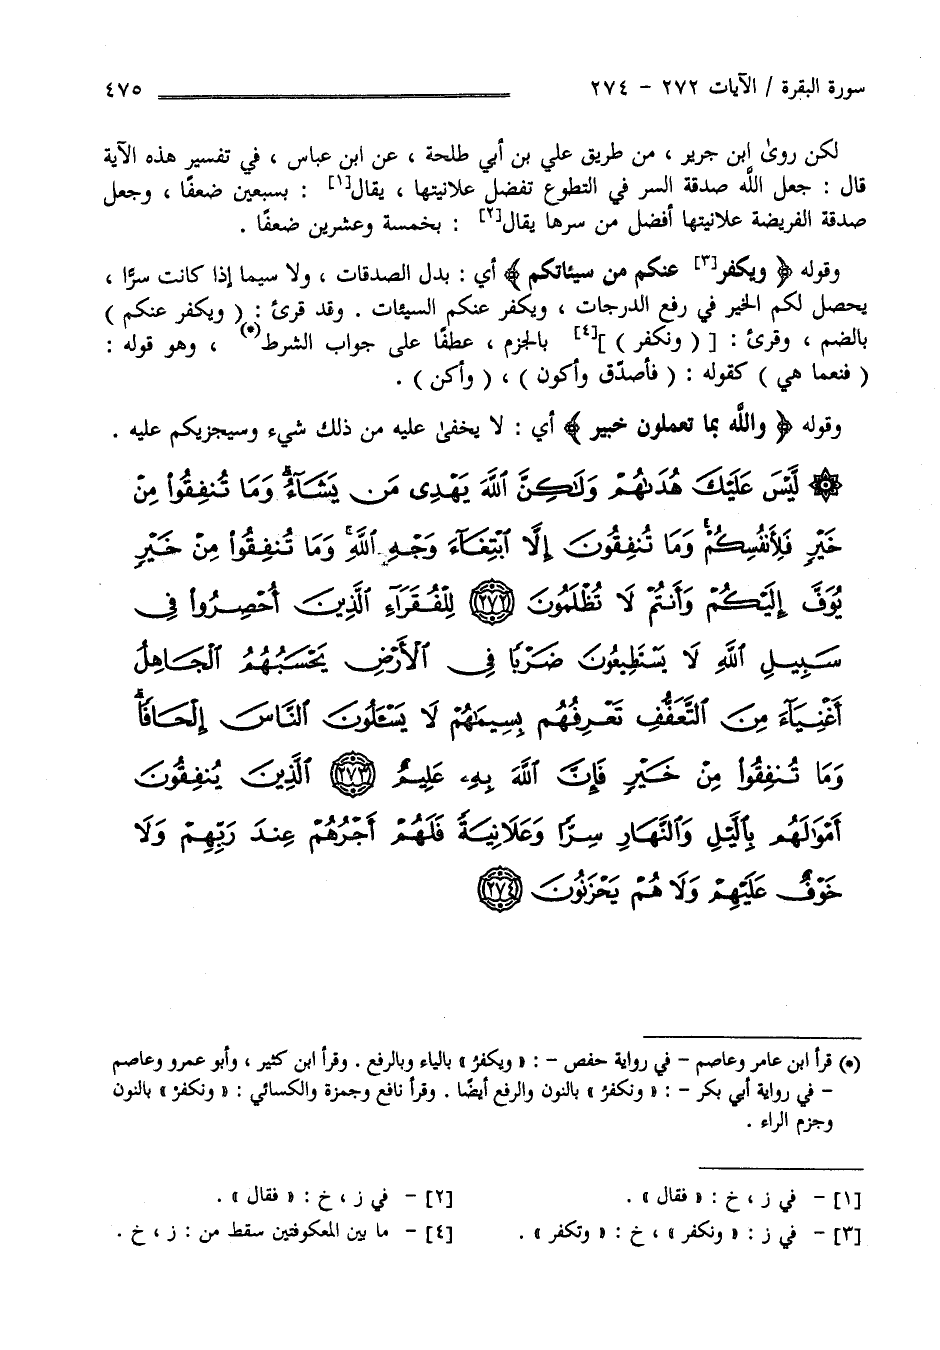 سورة البقرة / الآيات ٢٧٢ - ٢٧٤ ٤٧٥
لكن روىٰ ابن جرير ، من طريق علي بن أبي طلحة ، عن ابن عباس ، في تفسير هذه الآية
قال : جعل اللَّه صدقة السر في التطوع تفضل علانيتها ، يقال[١] : بسبعين ضعفًا ، وجعل
صدقة الفريضة علانيتها أفضل من سرها يقال[٢] : بخمسة وعشرين ضعفًا .
وقوله ﴿ ويكفر[٣] عنكم من سيئاتكم ﴾ أي : بدل الصدقات ، ولا سيما إذا كانت سرًّا ،
يحصل لكم الخير في رفع الدرجات ، ويكفر عنكم السيئات . وقد قرئ : ( ويكفر عنكم )
بالضم ، وقرئ : [ ( ونكفر ) ][٤] بالجزم ، عطفًا على جواب الشرط(*) ، وهو قوله :
( فنعما هي ) كقوله : ( فأصدّق وأكون ) ، ( وأكن ) .
وقوله ﴿ واللَّه بما تعملون خبير ﴾ أي : لا يخفىٰ عليه من ذلك شيء وسيجزيكم عليه .
۞ لَّيْسَ عَلَيْكَ هُدَىٰهُمْ وَلَٰكِنَّ ٱللَّهَ يَهْدِى مَن يَشَآءُ ۗ وَمَا تُنفِقُوا۟ مِنْ
خَيْرٍ فَلِأَنفُسِكُمْ ۚ وَمَا تُنفِقُونَ إِلَّا ٱبْتِغَآءَ وَجْهِ ٱللَّهِ ۚ وَمَا تُنفِقُوا۟ مِنْ خَيْرٍ
يُوَفَّ إِلَيْكُمْ وَأَنتُمْ لَا تُظْلَمُونَ ﴿٢٧٢﴾ لِلْفُقَرَآءِ ٱلَّذِينَ أُحْصِرُوا۟ فِى
سَبِيلِ ٱللَّهِ لَا يَسْتَطِيعُونَ ضَرْبًا فِى ٱلْأَرْضِ يَحْسَبُهُمُ ٱلْجَاهِلُ
أَغْنِيَآءَ مِنَ ٱلتَّعَفُّفِ تَعْرِفُهُم بِسِيمَٰهُمْ لَا يَسْـَٔلُونَ ٱلنَّاسَ إِلْحَافًا ۗ
وَمَا تُنفِقُوا۟ مِنْ خَيْرٍ فَإِنَّ ٱللَّهَ بِهِۦ عَلِيمٌ ﴿٢٧٣﴾ ٱلَّذِينَ يُنفِقُونَ
أَمْوَٰلَهُم بِٱلَّيْلِ وَٱلنَّهَارِ سِرًّا وَعَلَانِيَةً فَلَهُمْ أَجْرُهُمْ عِندَ رَبِّهِمْ وَلَا
خَوْفٌ عَلَيْهِمْ وَلَا هُمْ يَحْزَنُونَ ﴿٢٧٤﴾
(*) قرأ ابن عامر وعاصم - في رواية حفص - : « ويكفرُ » بالياء وبالرفع . وقرأ ابن كثير ، وأبو عمرو وعاصم
- في رواية أبي بكر - : « ونكفرُ » بالنون والرفع أيضًا . وقرأ نافع وحمزة والكسائي : « ونكفرْ » بالنون
وجزم الراء .
[١] - في ز ، خ : « فقال » . [٢] - في ز ، خ : « فقال » .
[٣] - في ز : « ونكفر » ، خ : « وتكفر » . [٤] - ما بين المعكوفتين سقط من : ز ، خ .